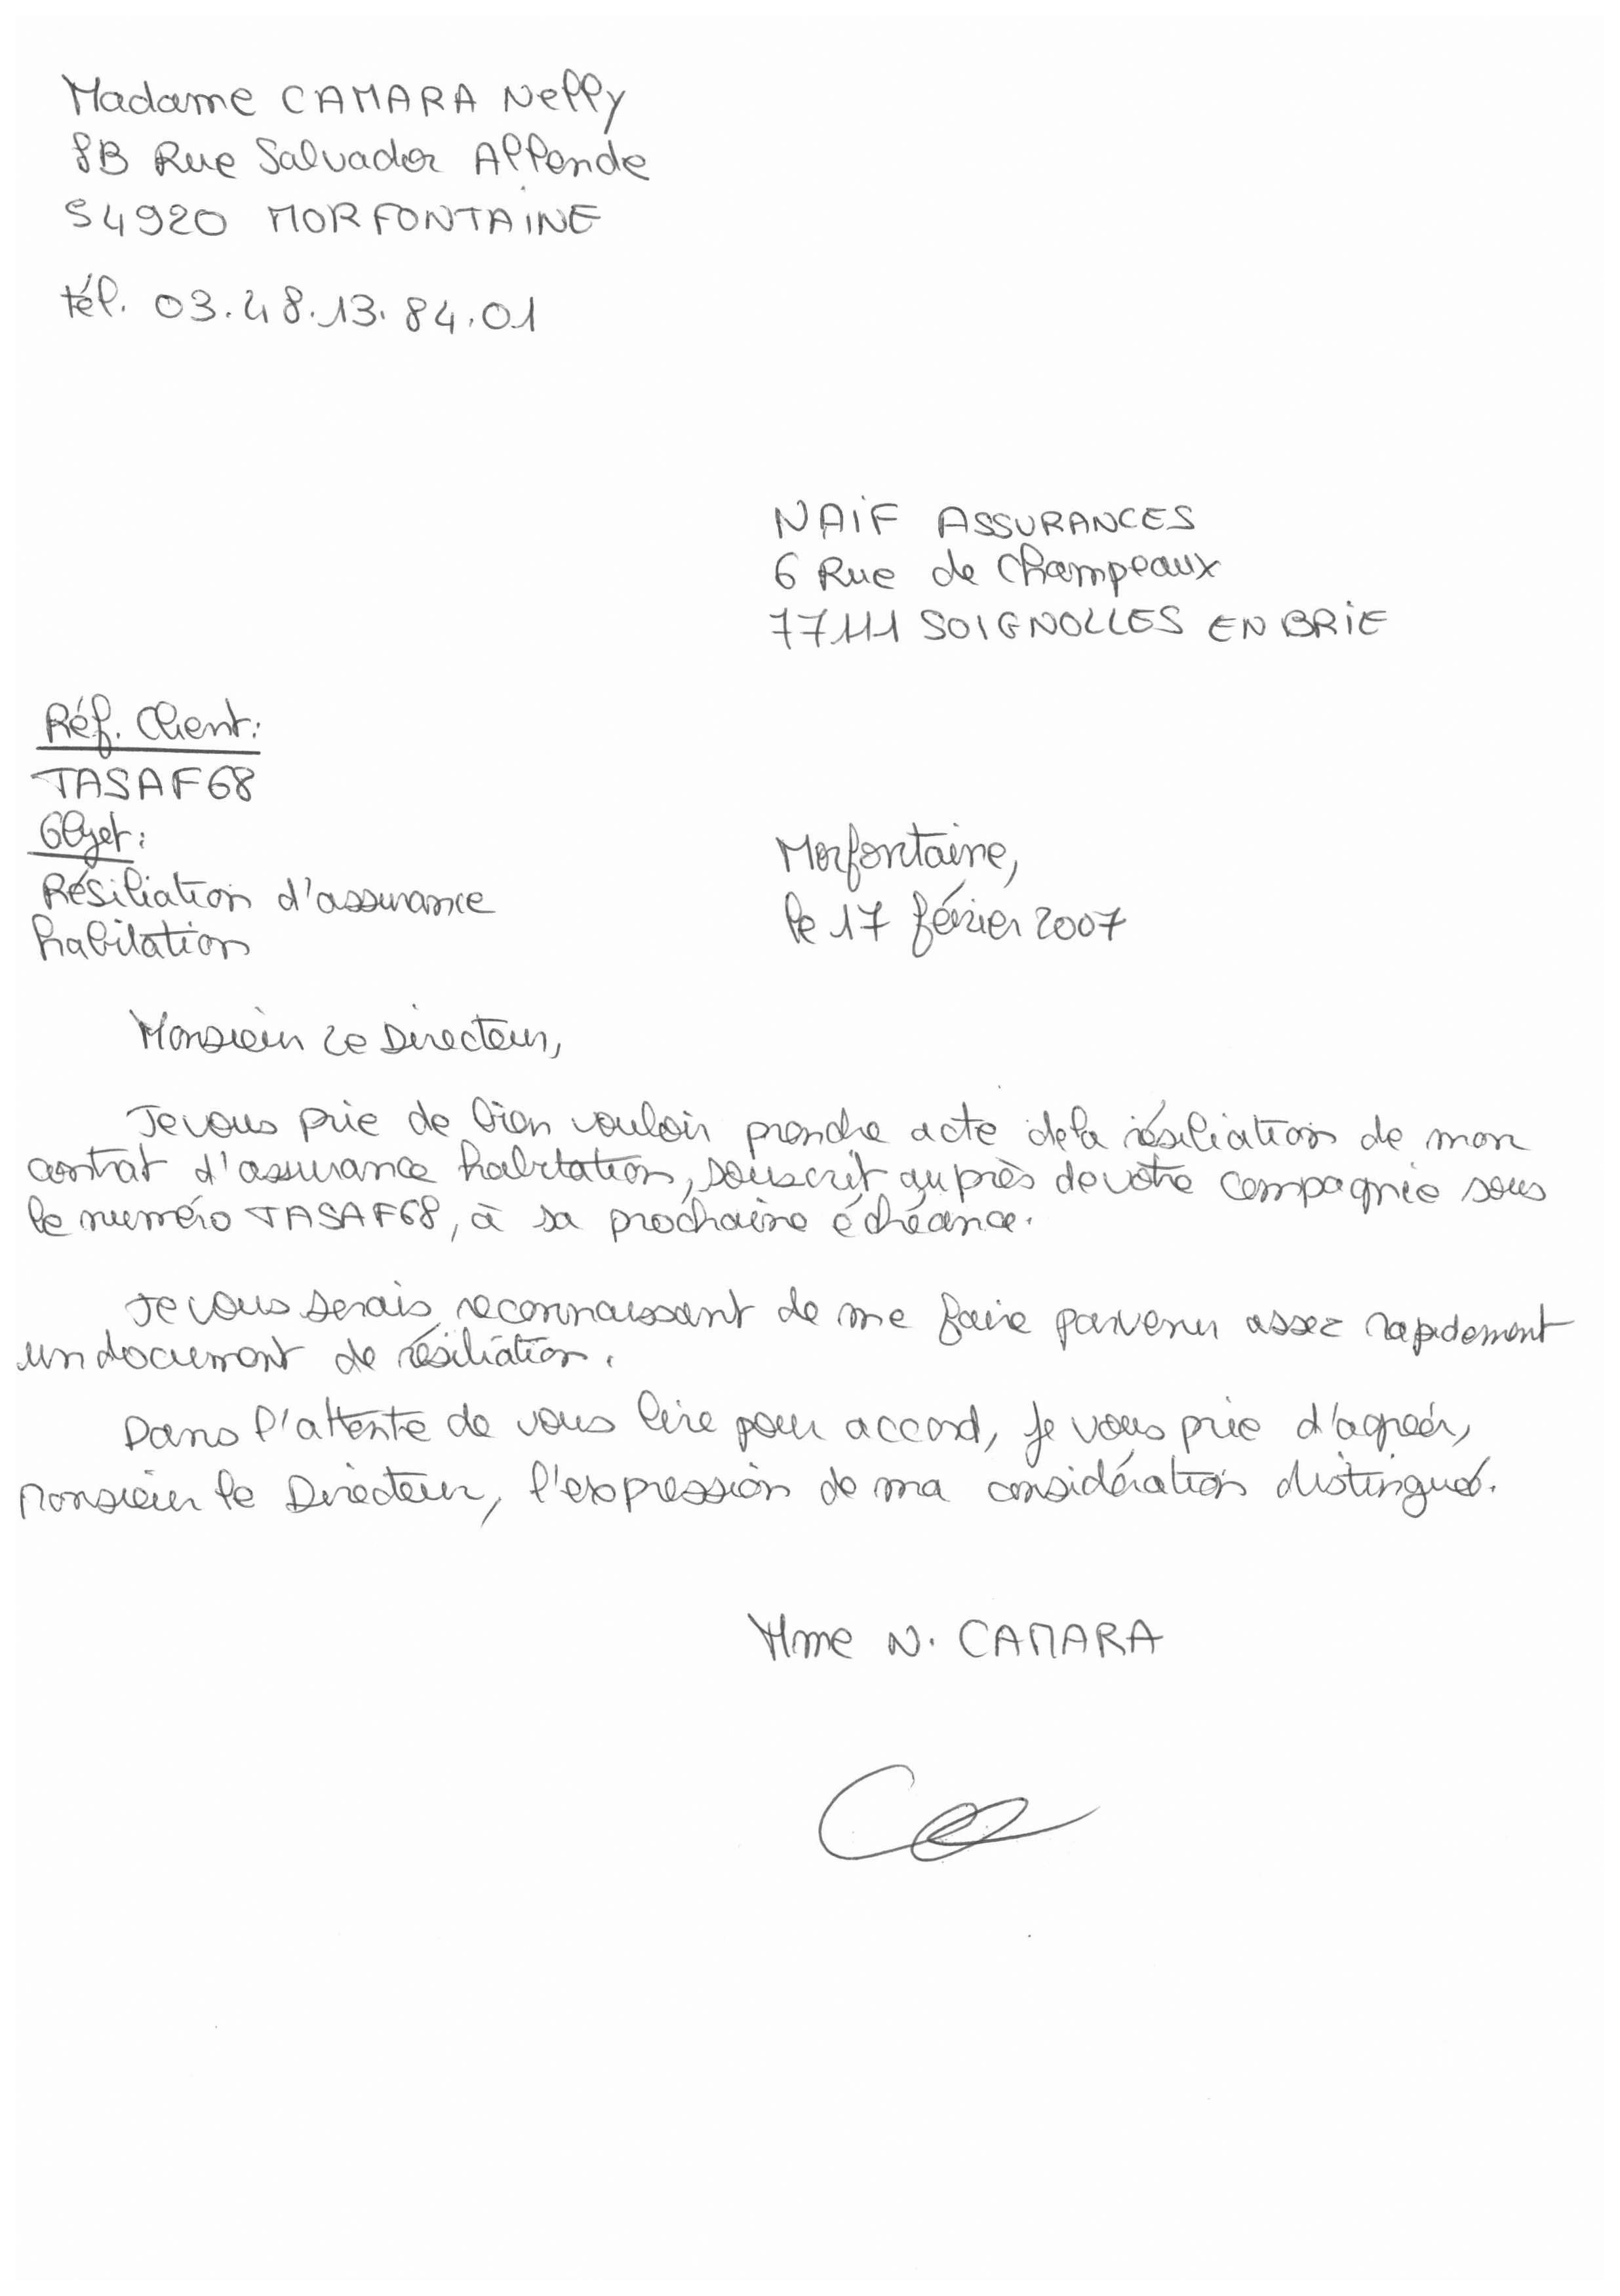 Madame CAMARA Nelly
8B Rue Salvador Allende
54920 MORFONTAINE
tél. 03.48.13.84.01
NAIF ASSURANCES
6 Rue de Champeaux
77111 SOIGNOLLES EN BRIE
Réf. Client:
TASAF68
Objet:
Résiliation d'assurance
habitation
Morfontaine,
le 17 février 2007
Monsieur Le Directeur,
Je vous prie de bien vouloir prendre acte de la résiliation de mon
contrat d'assurance habitation, souscrit auprès de votre compagnie sous
le numéro TASAF68, à sa prochaine échéance.
Je vous serais reconnaissant de me faire parvenir assez rapidement
un document de résiliation.
Dans l'attente de vous lire pour accord, je vous prie d'agréer,
Monsieur le Directeur, l'expression de ma considération distingué.
Mme N. CAMARA